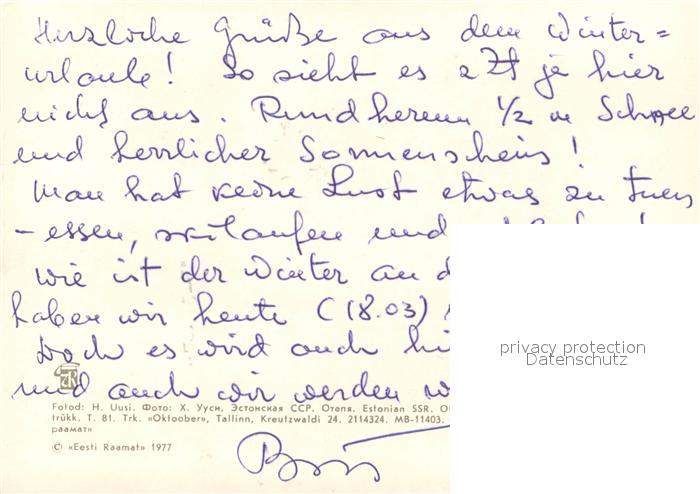 Herzliche Grüße aus dem Winter=
urlaub! So sieht es z Zt ja hier
nicht aus. Rundherum 1/2 m Schnee
und herrlicher Sonnenschein!
Man hat keine Lust etwas zu tuen
- essen, skilaufen und
wie ist der Winter an d
haben wir heute (18.03)
Doch es wird auch hi
und auch wir werden w
Fotod: H. Uusi. Фото: Х. Ууси, Эстонская ССР. Отепя. Estonian SSR. O
trükk. T. 81. Trk. «Oktoober», Tallinn, Kreutzwaldi 24. 2114324. MB-11403.
раамат»
© «Eesti Raamat» 1977
privacy protection
Datenschutz